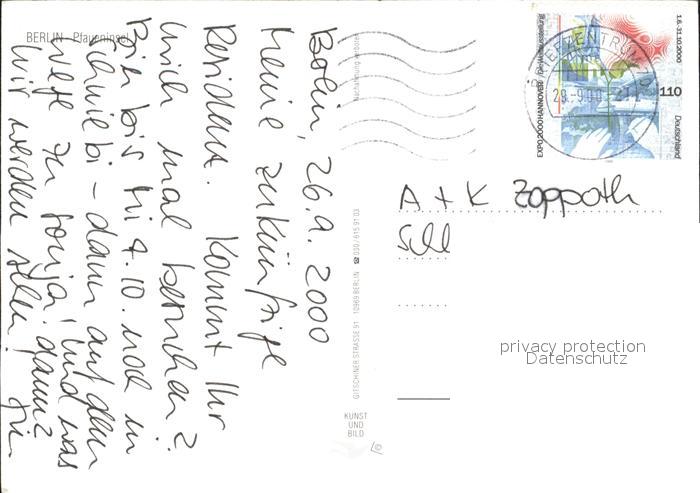 BERLIN - Pfaueninsel
Berlin, 26.9.2000
Meine zukünftige
Residenz. Kommt Ihr
mich mal besuchen?
Bin bis 4.10. noch in
Schwiebi - dann auf dem
Wege zu Tonja! Und was
dann?
wir werden sehen!
Nachahmung verboten
GITSCHINER STRASSE 91 10969 BERLIN ☎ 030 / 615 91 03
KUNST
UND
BILD
©
EXPO 2000 HANNOVER Die Weltausstellung
1.6.-31.10.2000
110
Deutschland
BRIEFZENTRUM
29.-9.00-21
A + K Zoppoth
privacy protection
Datenschutz